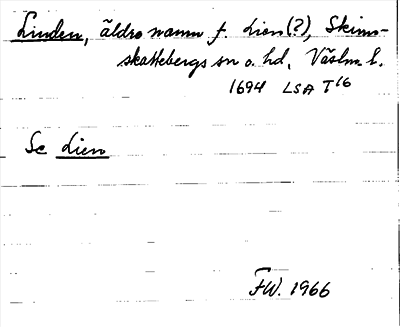 Linden, äldre namn f. Lien (?), Skinn-
skattebergs sn o. hd, Väslm. l.
1694 LSA T16
Se Lien
FW. 1966